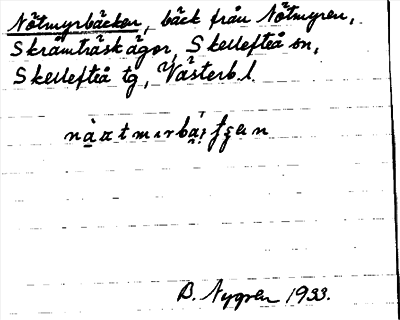 Nötmyrbäcken, bäck från Nötmyren,
Skråmträsk ägor, Skellefteå sn,
Skellefteå tg, Västerb. l.
B. Nygren 1933.